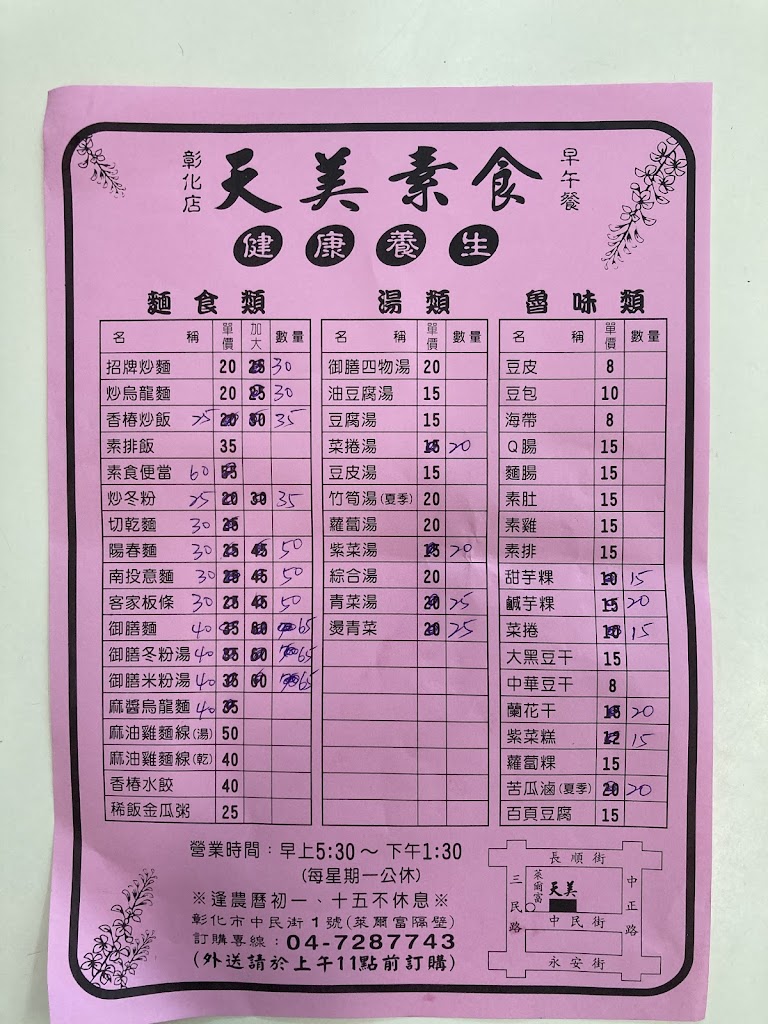 彰化店 天美素食 早午餐
健康養生
麵食類
名稱 單價 加大 數量
招牌炒麵 20 25 30
炒烏龍麵 20 25 30
香椿炒飯 25 20 30 35
素排飯 35
素食便當 60
炒冬粉 25 20 30 35
切乾麵 30 25
陽春麵 30 25 45 50
南投意麵 30 45 50
客家板條 30 25 45 50
御膳麵 40 35 60 65
御膳冬粉湯 40 35 60 65
御膳米粉湯 40 35 60 65
麻醬烏龍麵 40 35
麻油雞麵線(湯) 50
麻油雞麵線(乾) 40
香椿水餃 40
稀飯金瓜粥 25
湯類
名稱 單價 數量
御膳四物湯 20
油豆腐湯 15
豆腐湯 15
菜捲湯 15 20
豆皮湯 15
竹筍湯(夏季) 20
蘿蔔湯 20
紫菜湯 15 20
綜合湯 20
青菜湯 20 25
燙青菜 20 25
魯味類
名稱 單價 數量
豆皮 8
豆包 10
海帶 8
Q腸 15
麵腸 15
素肚 15
素雞 15
素排 15
甜芋粿 10 15
鹹芋粿 15 20
菜捲 10 15
大黑豆干 15
中華豆干 8
蘭花干 15 20
紫菜糕 12 15
蘿蔔粿 15
苦瓜滷(夏季) 20 20
百頁豆腐 15
營業時間：早上5:30～下午1:30
(每星期一公休)
※逢農曆初一、十五不休息※
彰化市中民街1號(萊爾富隔壁)
訂購專線：04-7287743
(外送請於上午11點前訂購)
長順街
三民路
萊爾富
天美
中正路
中民街
永安街